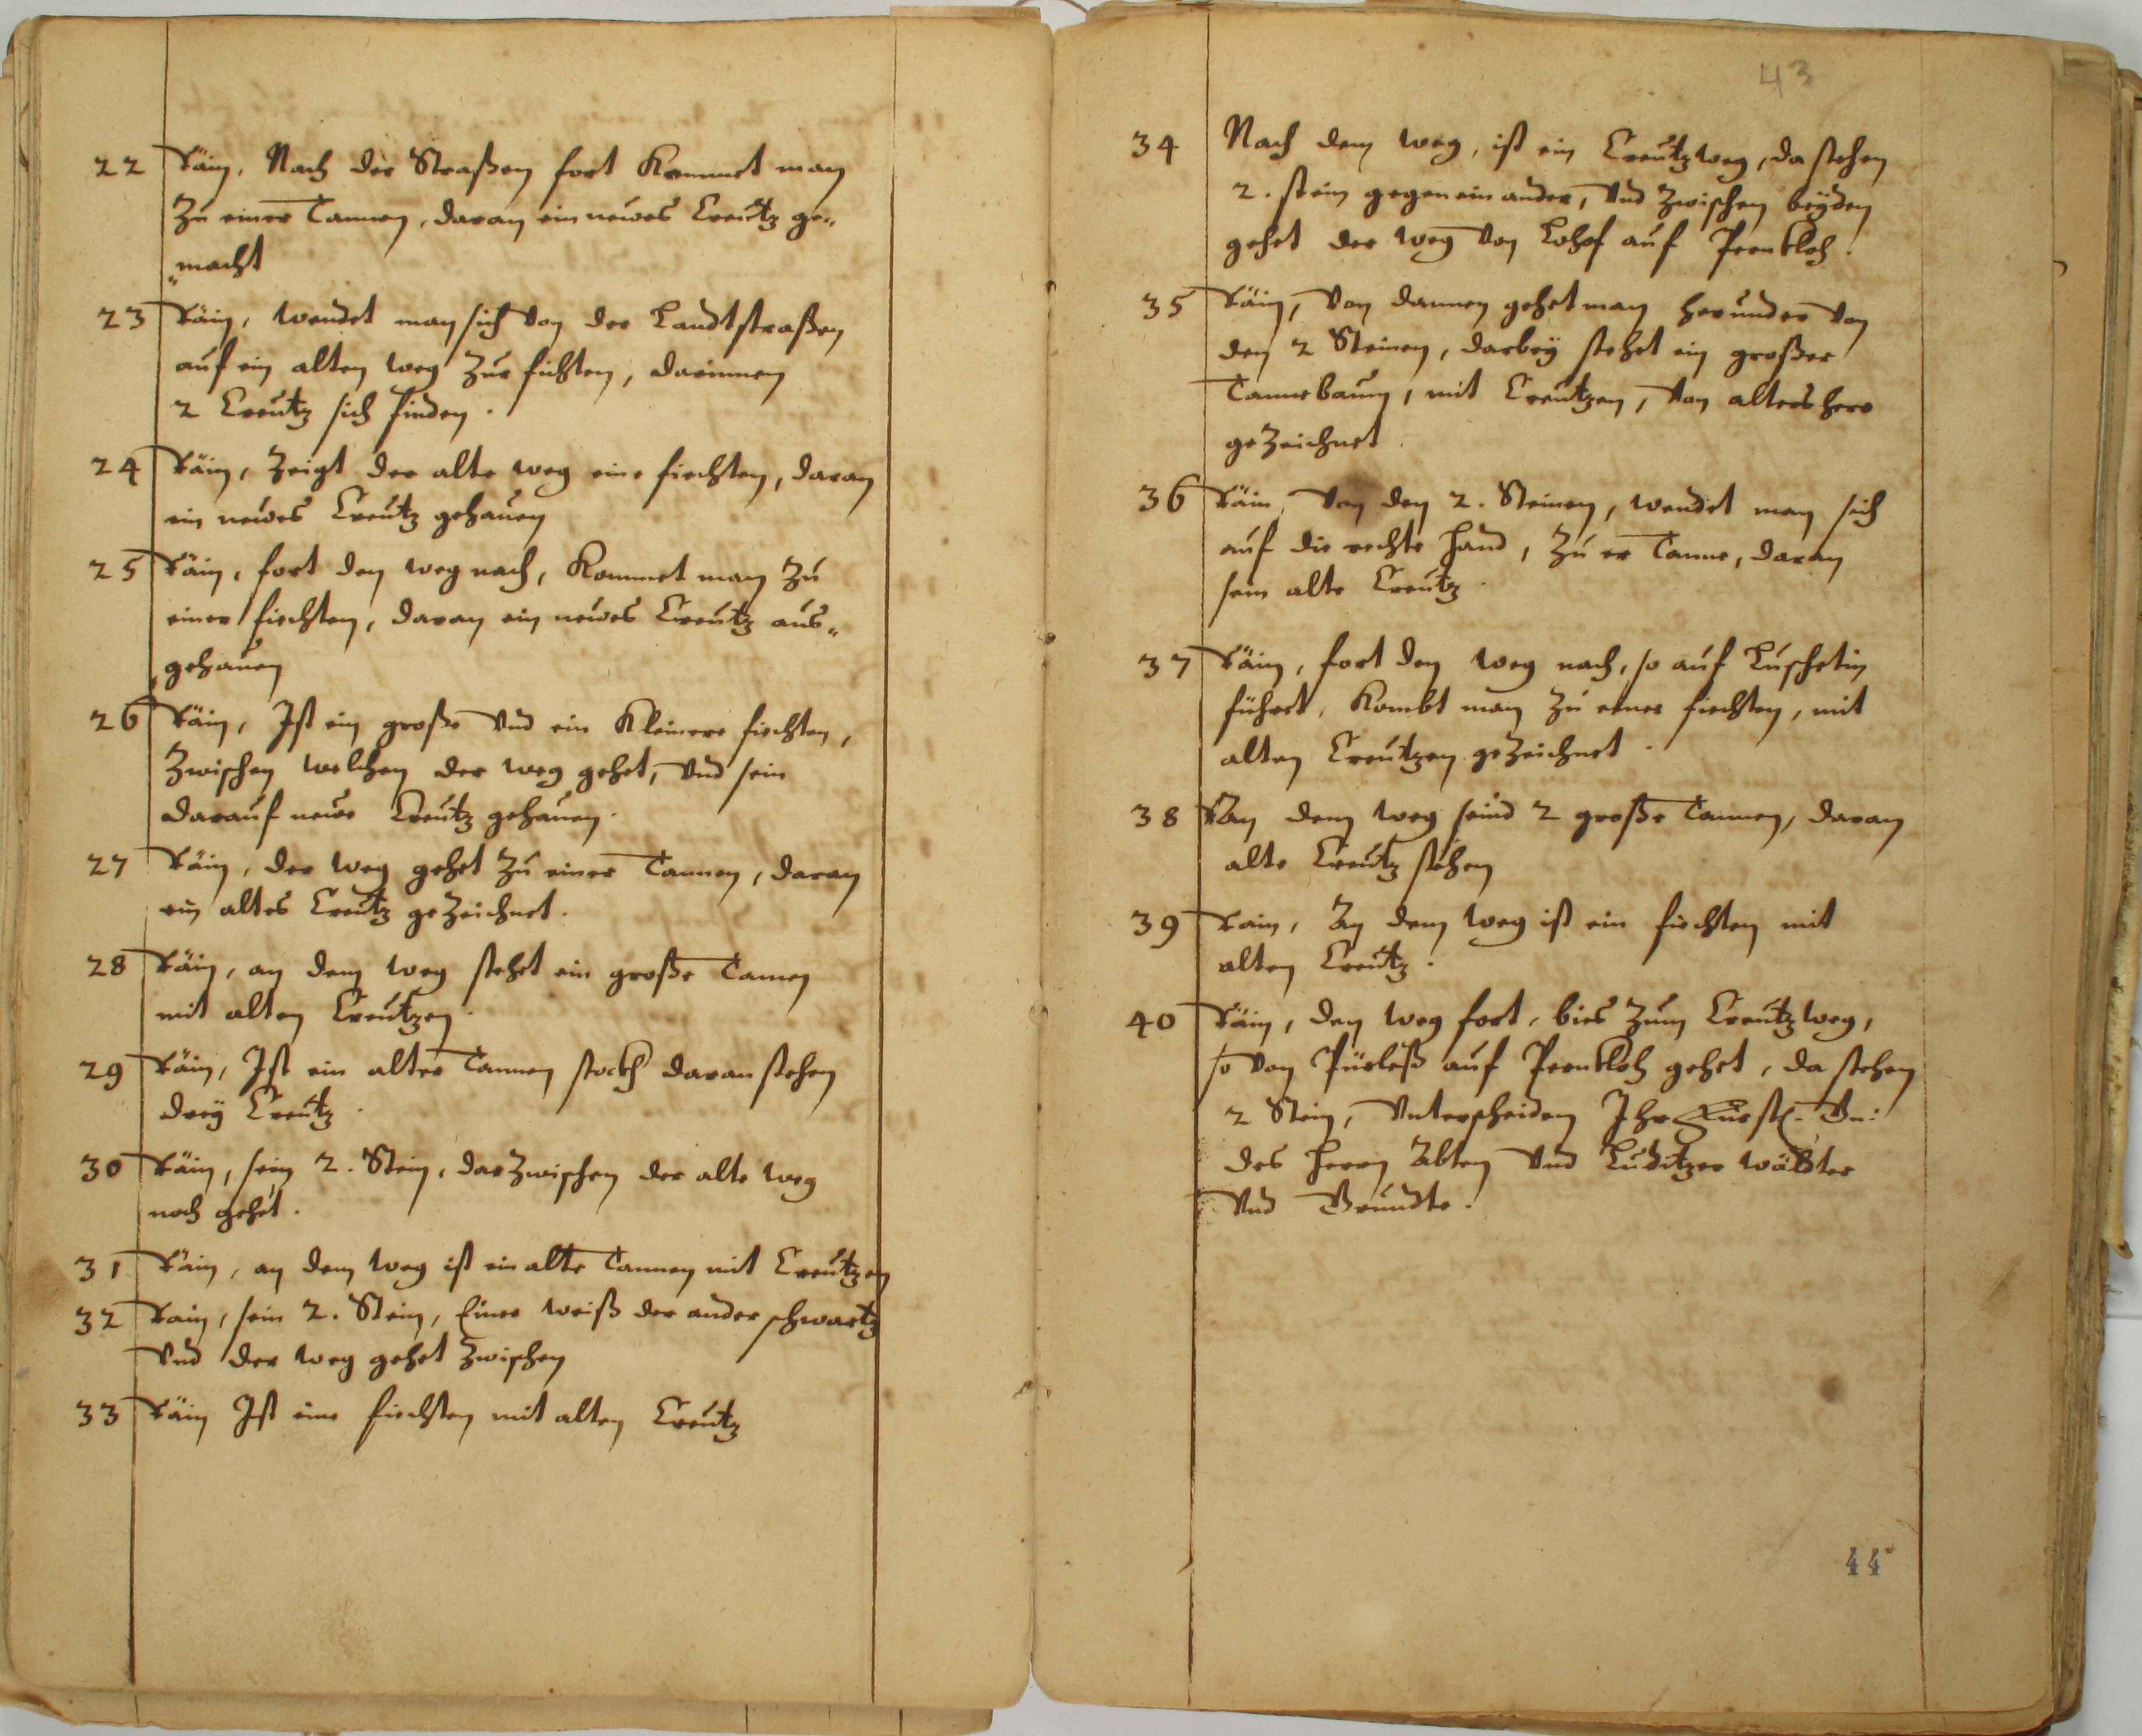 22 Räin, Nach der Straßen fort Kommet man
Zu einer Tannen, daran ein neües Creütz ge„
„macht
23 Räin, wendet man sich von der Landtstraßen
auf ein alten weg Zur fichten, darinnen
2 Creütz sich finden.
24 Räin, Zeigt der alte weg eine fiechten, daran
ein neües Creütz gehauen
25 Räin, fort den weg nach, Kommet man Zu
einer fiechten, daran ein neües Creütz aus„
„gehauen
26 Räin, Ist ein große vnd ein Kleinere fiechten,
Zwischen welchen der weg gehet, vnd sein
darauf neue Creütz gehauen.
27 Räin, der weg gehet Zu einer Tannen, daran
ein altes Creütz geZeichnet.
28 Räin, an dem weg stehet ein große Tannen
mit alten Creützen.
29 Räin, Ist ein alter Tannen stockh daran stehen
drey Creütz.
30 Räin, sein 2. Stein, darZwischen der alte weg
noch gehet.
31 Räin, an dem weg ist ein alte Tannen mit Creützen
32 Rain, sein 2. Stein, Einer weiß der ander schwartz
vnd der weg gehet Zwischen
33 Räin Ist eine fiechten mit alten Creütz
43
34 Nach dem weg, ist ein Creützweg, da stehen
2. stein gegen ein ander, vnd Zwischen beyden
gehet der weg von Lohof auf Prenkloh.
35 Räin, von dannen gehet man herunder von
den 2 Steinen, darbey stehet ein großer
Tannebaum, mit Creützen, von altershero
geZeichnet.
36 Räin, von den 2. Steinen, wendet man sich
auf die rechte Hand, Zu er Tanne, daran
sein alte Creütz.
37 Räin, fort den weg nach, so auf Luschetin
führet, Kombt man Zu einer fiechten, mit
alten Creützen geZeichnet.
38 An dem weg seind 2 große Tannen, daran
alte Creütz stehen
39 Rain, An dem weg ist ein fiechten mit
alten Creütz.
40 Räin, den weg fort, bies Zum Creützweg,
so von Pürleß auf Prenkloh gehet, da stehen
2 Stein, vnterscheiden Ihr Fürstl. Gn:
des Herrn Abten vnd Luditzer wälder
vnd Gründte.
44